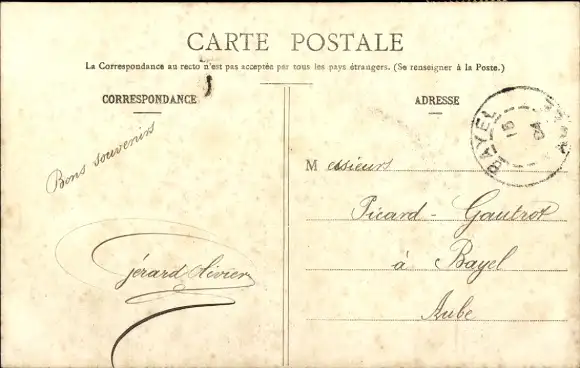 CARTE POSTALE
La Correspondance au recto n'est pas acceptée par tous les pays étrangers. (Se renseigner à la Poste.)
CORRESPONDANCE
ADRESSE
BAYEL
Bons souvenirs
Gérard Olivier
Messieurs
Picard - Gautrot
à Bayel
Aube